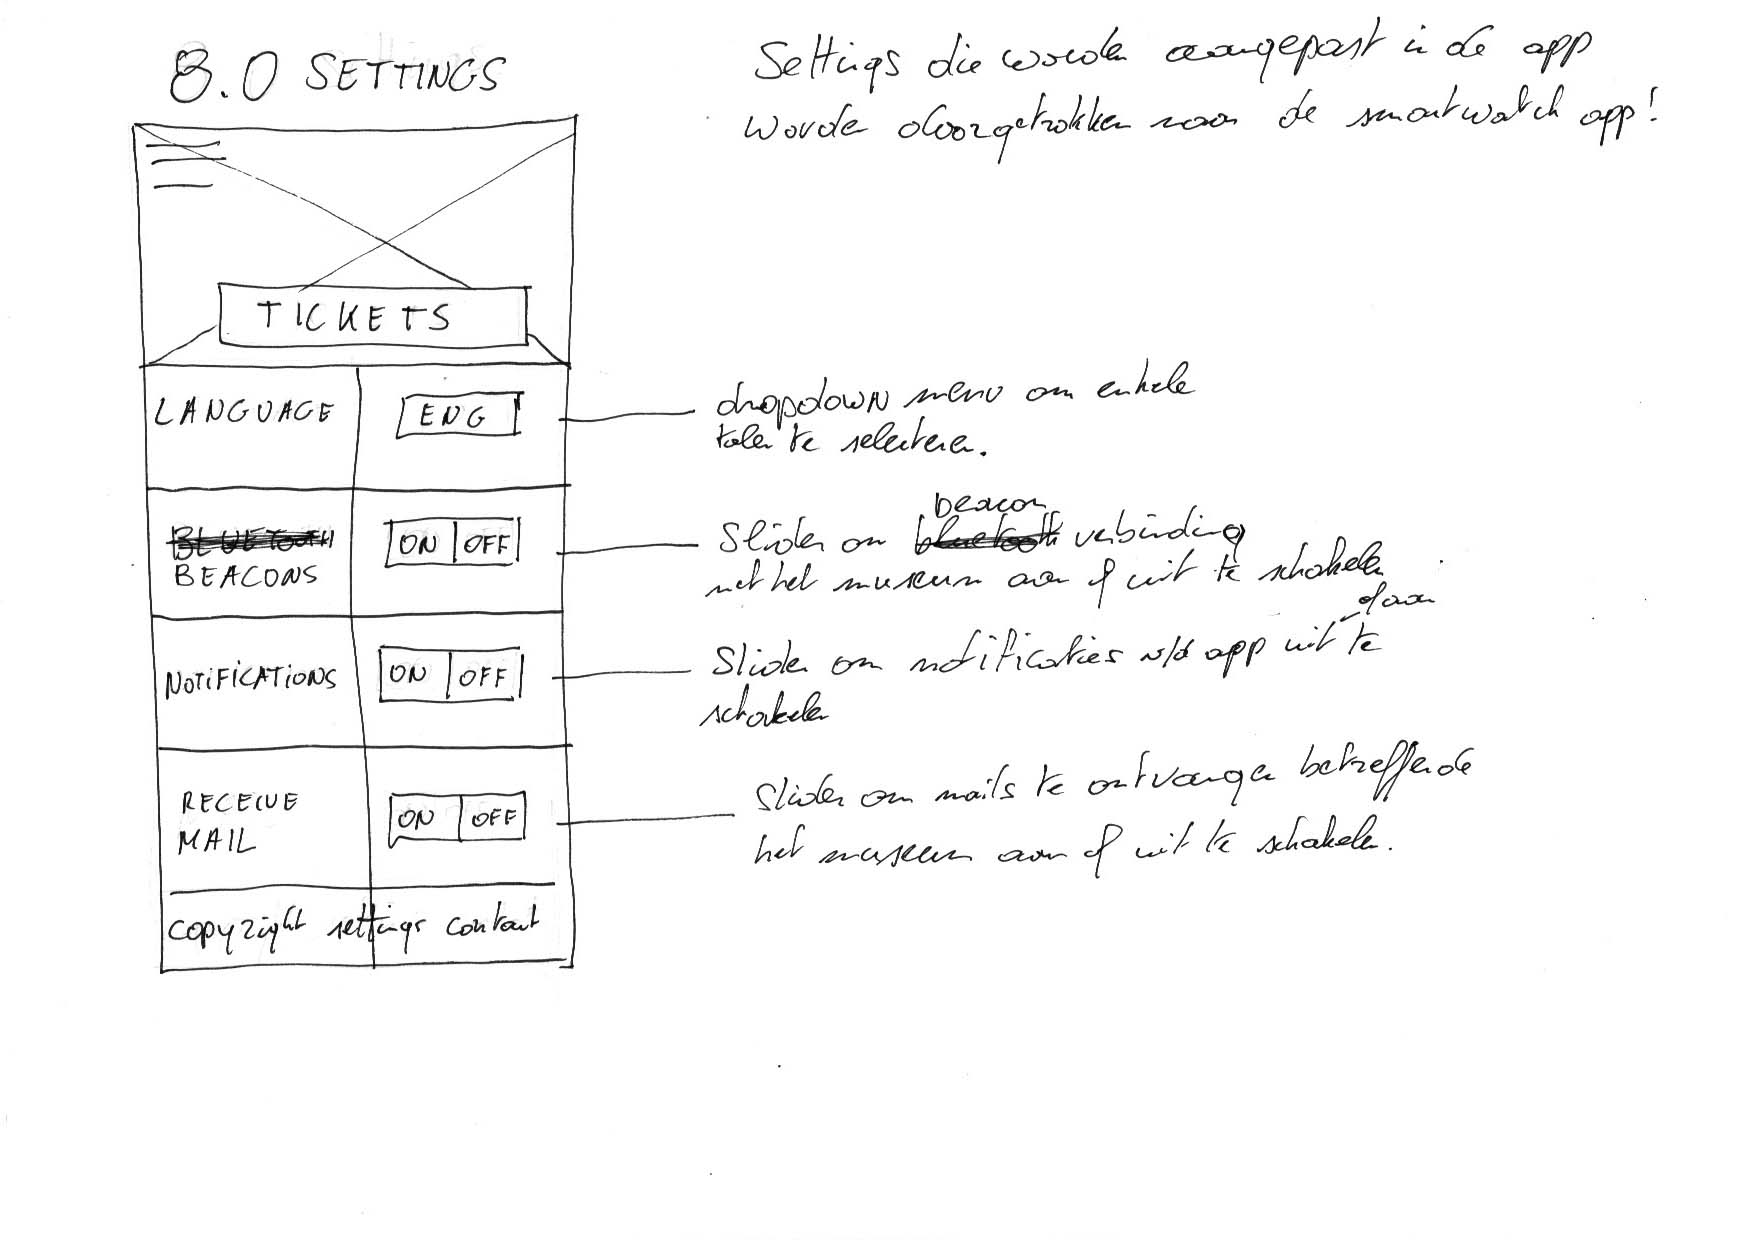 8.0 SETTINGS
Settings die worden aangepast in de app
worde doorgetrokken naar de smartwatch app!
TICKETS
LANGUAGE
ENG
dropdown menu om enkele
talen te selecteren.
BLUETOOTH
BEACONS
ON OFF
beacon
Slider om bluetooth verbinding
met het museum aan of uit te schakelen
NOTIFICATIONS
ON OFF
of aan
Slider om notificaties v/d app uit te
schakelen
RECEIVE
MAIL
ON OFF
Slider om mails te ontvangen betreffende
het museum aan of uit te schakelen.
copyright settings contact